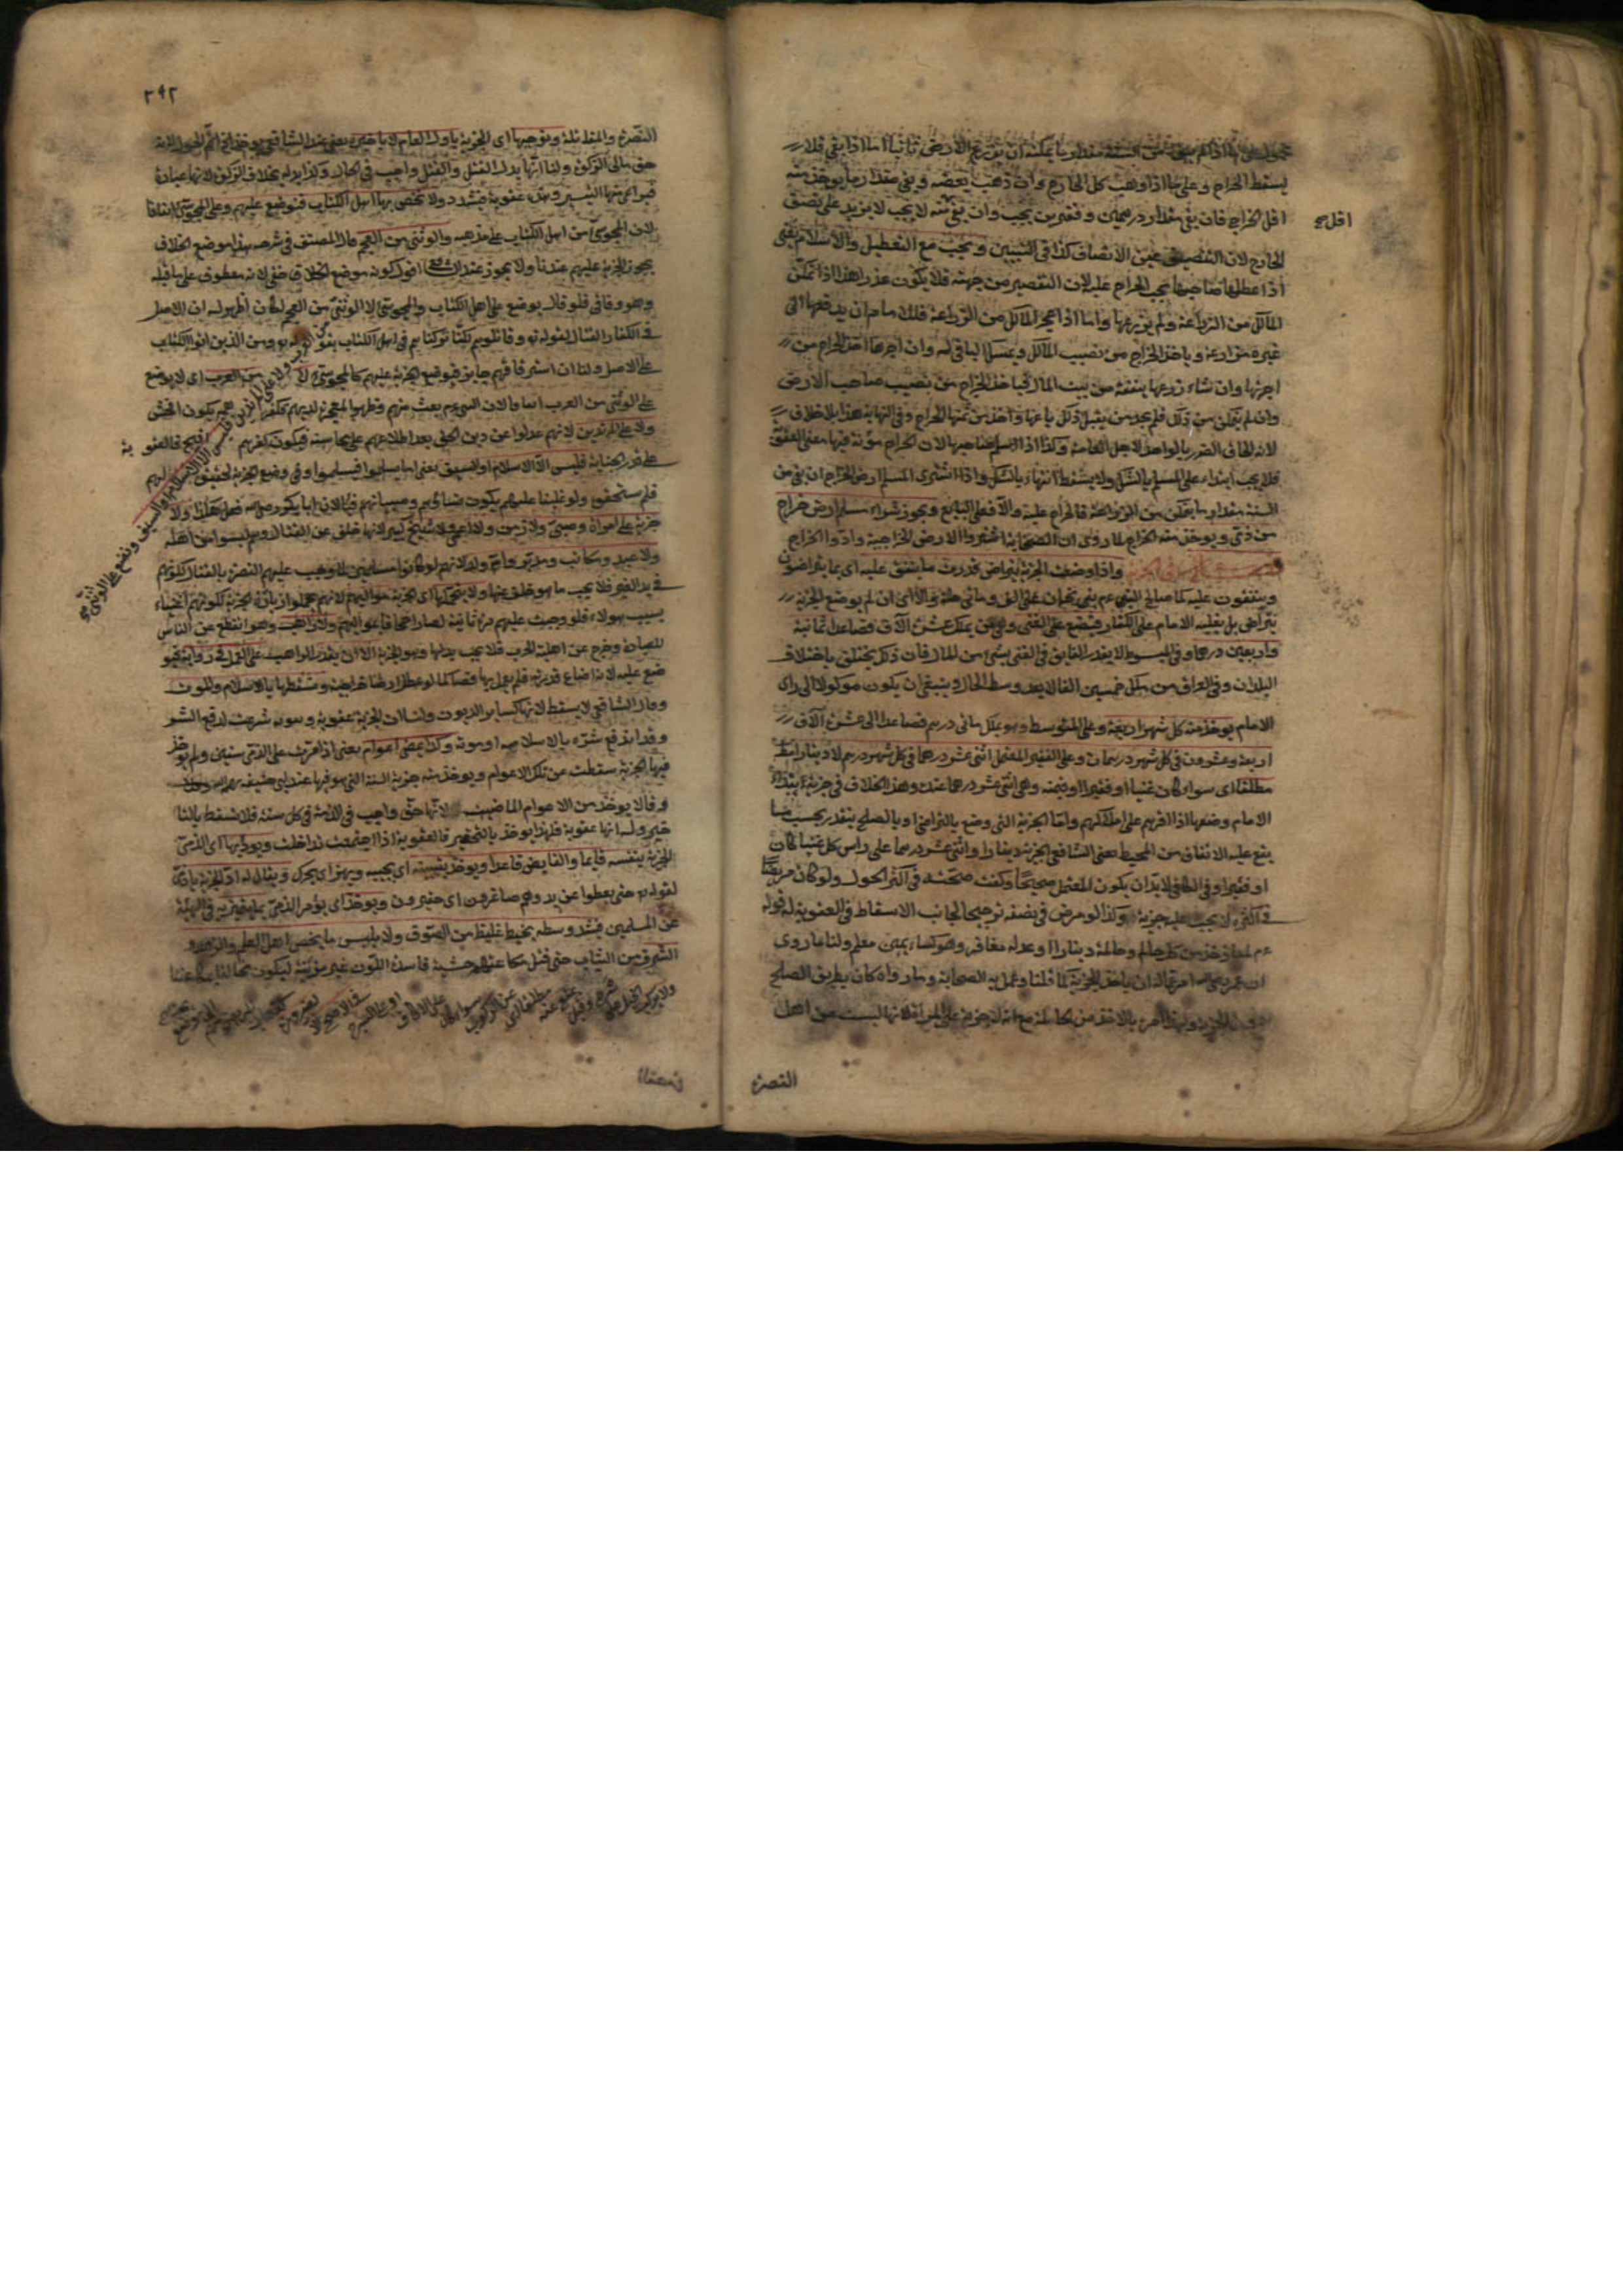 يسقط الخراج وعلى ما اذا ذهب كل الخارج وان ذهب بعضه وبقي مقدار ما يؤخذ منه
اقل مح
اقل الخراج فان بقي مقدار درهمين وقفيزين يجب وان بقي منه لا يجب لا يزيد على نصف
الخارج لان التنصيف عين الانصاف كذا في التبيين ويجب مع التعطيل والاسلام يعني
اذا عطلها صاحبها يجب الخراج عليه لان التقصير من جهته فلا يكون عذرا هذا اذا تمكن
المالك من الزراعة ولم يزرعها واما اذا عجز المالك من الزراعة فللامام ان يدفعها الى
غيره مزارعة وياخذ الخراج من نصيب المالك ويمسك الباقي له وان اجرها اخذ الخراج من
اجرتها وان شاء زرعها بنفقة من بيت المال فياخذ الخراج من نصيب صاحب الارض
وان لم يتمكن من ذلك فلم يجد من يقبل ذلك باعها واخذ من ثمنها الخراج وفي النهاية هذا بلا خلاف
لانه الحاق الضرر بالواحد لاجل العامة وكذا اذا اسلم صاحبها لان الخراج مؤنة فيها معنى العقوبة
فلا يجب ابتداء على المسلم بالشك ولا يسقط انتهاء بالشك واذا اشترى المسلم ارض الخراج ان بقي من
السنة مقدار ما يتمكن من الزراعة فالخراج عليه والا فعلى البايع ويجوز شراء مسلم ارض خراج
من ذمي ويؤخذ منه الخراج لما روى ان الصحابة اشتروا الارض الخراجية وادوا الخراج
واذا وضعت الجزية بتراض قدرت ما يتفق عليه اى بما يتراضون
ويتفقون عليه كما صالح النبي عم بني نجران على الف ومائتي حلة والا اى ان لم يوضع الجزية
بتراض بل بغلبة الامام على الكفار فيضع على الغني وهو من يملك عشرة آلاف فصاعدا ثمانية
واربعين درهما وفي المبسوط لا يقدر الفايق في الغني بشئ من المال فان ذلك يختلف باختلاف
البلدان وفي العراق من يملك خمسين الفا لا يعد وسط الحال وينبغي ان يكون موكولا الى راى
الامام يؤخذ منه كل شهر اربعة وعلى المتوسط وهو يملك مائتي درهم فصاعدا الى عشرة آلاف
اربعة وعشرون في كل شهر درهمان وعلى الفقير المعتمل اثنى عشر درهما في كل شهر درهم لا دينارا فقط
مطلقا اى سواء كان غنيا او فقيرا او قيمته وهي اثنى عشر درهما عنده وهذا الخلاف في جزية ابتداء
الامام وضعها اذا اقرهم على املاكهم واما الجزية التي وضع بالتراضي او بالصلح يتقدر بحسب ما
يقع عليه الاتفاق من المحيط يعني الشافعي الجزية دينارا واثنى عشر درهما على راس كل غنيا كان
او فقيرا وفي الكافي لا بد ان يكون المعتمل صحيحا وكفت صحته في اكثر الحول ولو كان مريضا
في اكثره لا يجب عليه جزية وكذا لو مرض في نصفه ترجيحا لجانب الاسقاط في العقوبة له قوله
عم لمعاذ خذ من كل حالم وحالمة دينارا او عدله معافر وهو كساء يمني معلم ولنا ما روى
ان عمر رضي الله امر عماله ان ياخذ الجزية كما قلنا وعمل به الصحابة وما رواه كان بطريق الصلح
دون الجزية ولهذا امر بالاخذ من الحالمة مع انه لا جزية على المراة لانها ليست من اهل
النصرة
٢٩٢
النصرة والمقاتلة ونوجبها اى الجزية باول العام لا باخره يعني عند الشافعي يؤخذ اذا تم الحول لانه
حق مالي كالزكوة ولنا انها بدل القتل والقتل واجب في الحال وكذا بدله بخلاف الزكوة لانها عبادة
فيراعى فيها التيسير وهذه عقوبة فيشدد ولا تختص بها اهل الكتاب فنوضع عليهم وعلى المجوسي اتفاقا
لان المجوسي من اهل الكتاب على مذهبه والوثني من العجم قال المصنف في شرحه هذا موضع الخلاف
يجوز الجزية عليهم عندنا ولا يجوز عند الشافعي اقول كونه موضع الخلاف خفي لانه معطوف على ما قبله
وهو وفاقي فلو قال يوضع على اهل الكتاب والمجوسي لا الوثني من العجم لكان اظهر له ان الاصل
في الكفار القتال لقوله تع وقاتلوهم لكنا تركناهم في اهل الكتاب بقوله تع ومن الذين اوتوا الكتاب
على الاصل ولنا ان استرقاقهم جايز فيوضع الجزية عليهم كالمجوسي لا من العرب اى لا يوضع
على الوثني من العرب اتفاقا لان النبي عم بعث منهم وظهر المعجزة لديهم فكفرهم يكون افحش
ولا على المرتدين لانهم عدلوا عن دين الحق بعد اطلاعهم على محاسنه فيكون كفرهم اقبح فالعقوبة
على قدر الجناية فليس الا الاسلام او السيف يعني اما يسلموا فيسلموا وفي وضع الجزية تخفيف لهم
فلم يستحقوه ولو غلبنا عليهم يكون نساؤهم وصبيانهم فيئا لان ابا بكر رضي الله فعل هكذا ولا
جزية على امراة وصبي ولا زمن ولا اعمى ولا شيخ كبير لانها خلف عن القتال وهم ليسوا من اهله
ولا عبد ومكاتب ومدبر وام ولد لانهم لو كانوا مسلمين لما وجب عليهم النصرة بالقتال لكونهم
في يد الغير فلا يجب ما هو خلف عنها ولا يتحملها اى الجزية مواليهم لانهم تحملوا زيادة الجزية لكونهم اغنياء
بسبب هولاء فلو وجبت عليهم مرة ثانية لصار اجحافا عواليهم ولا راهب وهو انقطع عن الناس
للعبادة وخرج عن اهلية الحرب فلا يجب بدلها وهو الجزية الا ان يقدر الراهب على العمل في رواية فيو
ضع عليه لانه اضاع قدرته فلم يعمل بها فصار كما لو عطل ارضا خراجية ونسقطها بالاسلام والموت
وقال الشافعي لا يسقط لانها كساير الديون ولنا ان الجزية عقوبة وهي شرعت لدفع الشر
وقد اندفع شره بالاسلام او موته وكذا بمضي اعوام يعني اذا مرت على الذمي سنين ولم يؤخذ
فيها الجزية سقطت عن تلك الاعوام ويؤخذ منه جزية السنة التي هو فيها عند ابي حنيفة رحمه الله
وقالا يؤخذ من الاعوام الماضية لانها حق واجب في الذمة في كل سنة فلا تسقط بالتا
خير وله انها عقوبة فلهذا يؤخذ بالتحقير فالعقوبة اذا اجتمعت تداخلت ويؤديها اى الذمي
الجزية بنفسه قايما والقابض قاعدا ويؤخذ بتلبيبه اى بجيبه ويهز اى يحرك ويقال له اد الجزية يا ذمي
لقوله تع حتى يعطوا عن يد وهم صاغرون اى حقيرون ويؤخذ اى يؤمر الذمي بما يتميز به في الهيئة
عن المسلمين فيشد وسطه بخيط غليظ من الصوف ولا يلبس ما يخص اهل العلم والزهد و
الشرف من الثياب